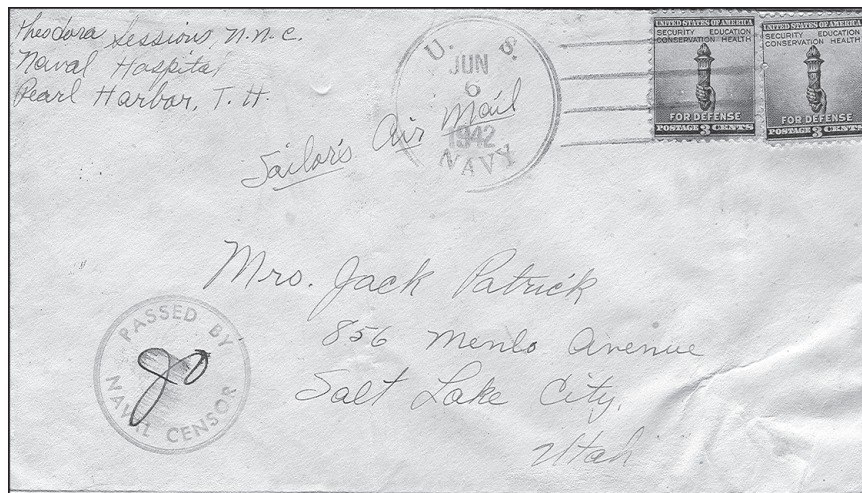 Theodora Sessions, N.N.C.
Naval Hospital
Pearl Harbor, T. H.
Sailor's Air Mail
U. S.
JUN
6
1942
NAVY
UNITED STATES OF AMERICA
SECURITY EDUCATION
CONSERVATION HEALTH
FOR DEFENSE
POSTAGE 3 CENTS
UNITED STATES OF AMERICA
SECURITY EDUCATION
CONSERVATION HEALTH
FOR DEFENSE
POSTAGE 3 CENTS
Mrs. Jack Patrick
856 Menlo Avenue
Salt Lake City,
Utah
PASSED BY
NAVAL CENSOR